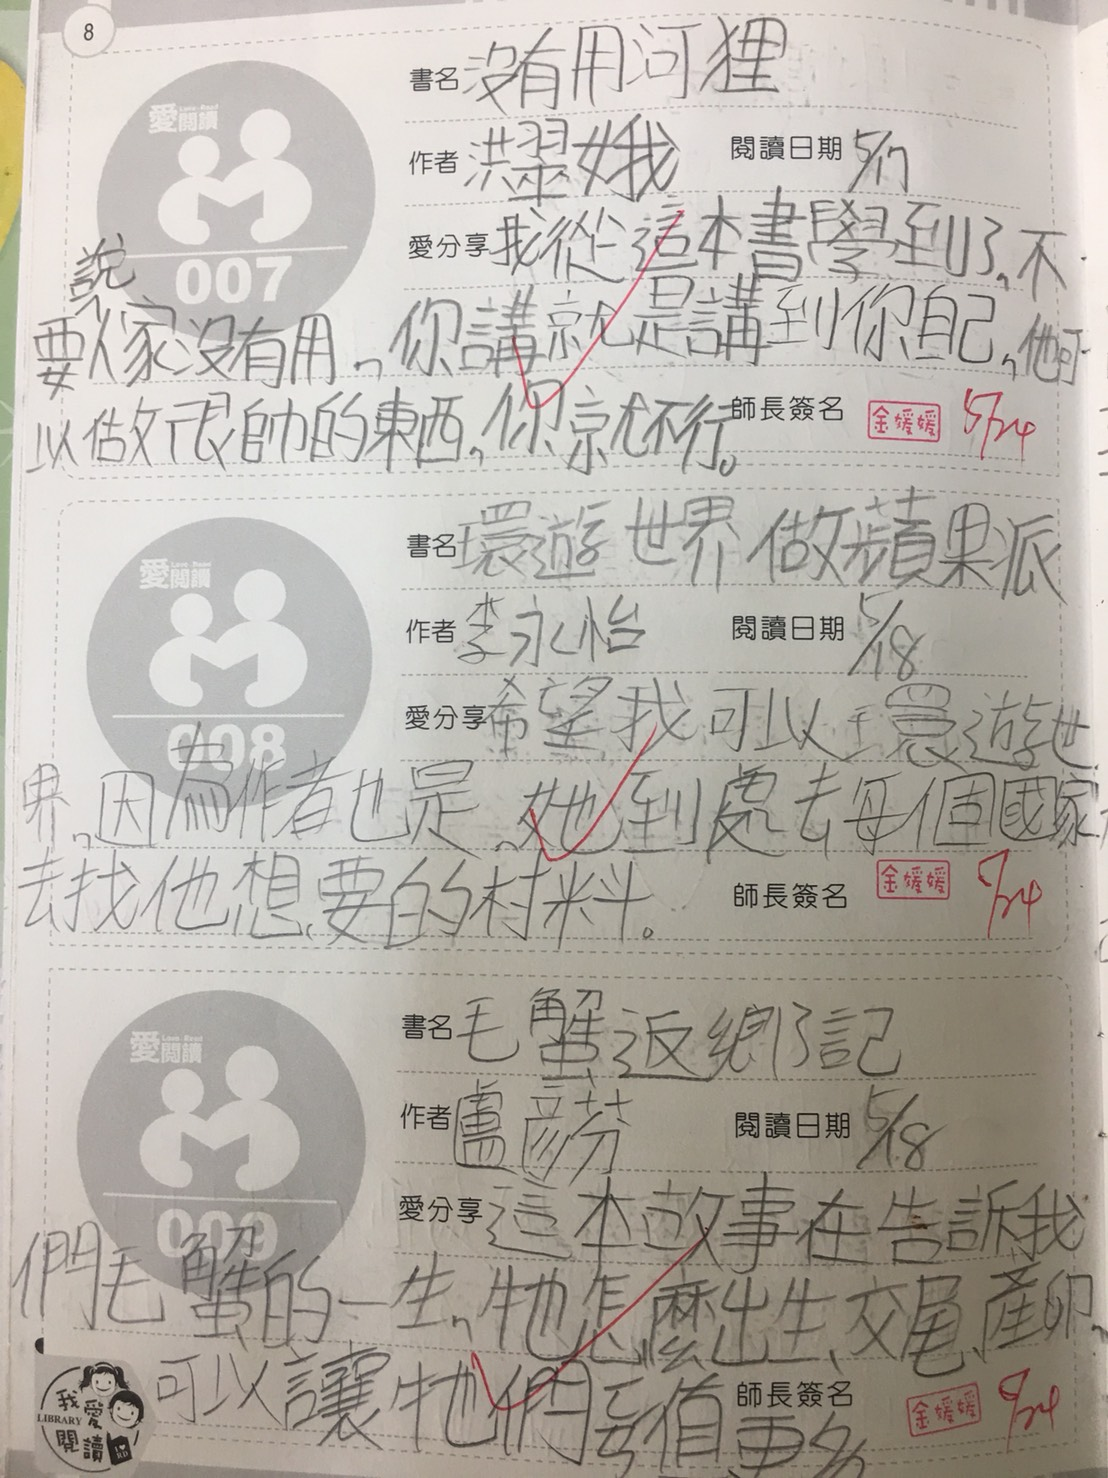 8
愛閱讀 Love Read
007
書名 沒有用河狸
作者 洪翠娥 閱讀日期 5/17
愛分享 我從這本書學到了,不
要說人家沒有用,你講就是講到你自己,他可
以做很帥的東西,你就不行。
師長簽名 金媛媛 5/24
愛閱讀 Love Read
008
書名 環遊世界做蘋果派
作者 李永怡 閱讀日期 5/18
愛分享 希望我可以環遊世
界,因為作者也是,她到處去每個國家
去找他想要的材料。
師長簽名 金媛媛 5/24
愛閱讀 Love Read
009
書名 毛蟹返鄉記
作者 盧彥芬 閱讀日期 5/18
愛分享 這本故事在告訴我
們毛蟹的一生,牠怎麼出生、交尾、產卵,
可以讓牠們
師長簽名 金媛媛 5/24
我愛閱讀
LIBRARY